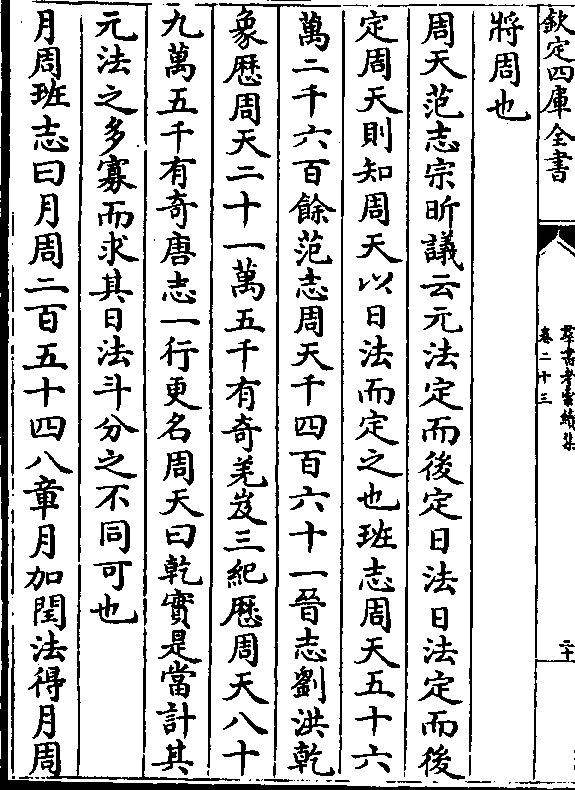 欽定四庫全書
羣書考索續集
卷二十三
二十
將周也
周天范志宗昕議云元法定而後定日法日法定而後
定周天則知周天以日法而定之也班志周天五十六
萬二千六百餘范志周天千四百六十一晉志劉洪乾
象歴周天二十一萬五千有奇羌岌三紀歴周天八十
九萬五千有奇唐志一行更名周天曰乾實是當計其
元法之多寡而求其日法斗分之不同可也
月周班志曰月周二百五十四八章月加閏法得月周